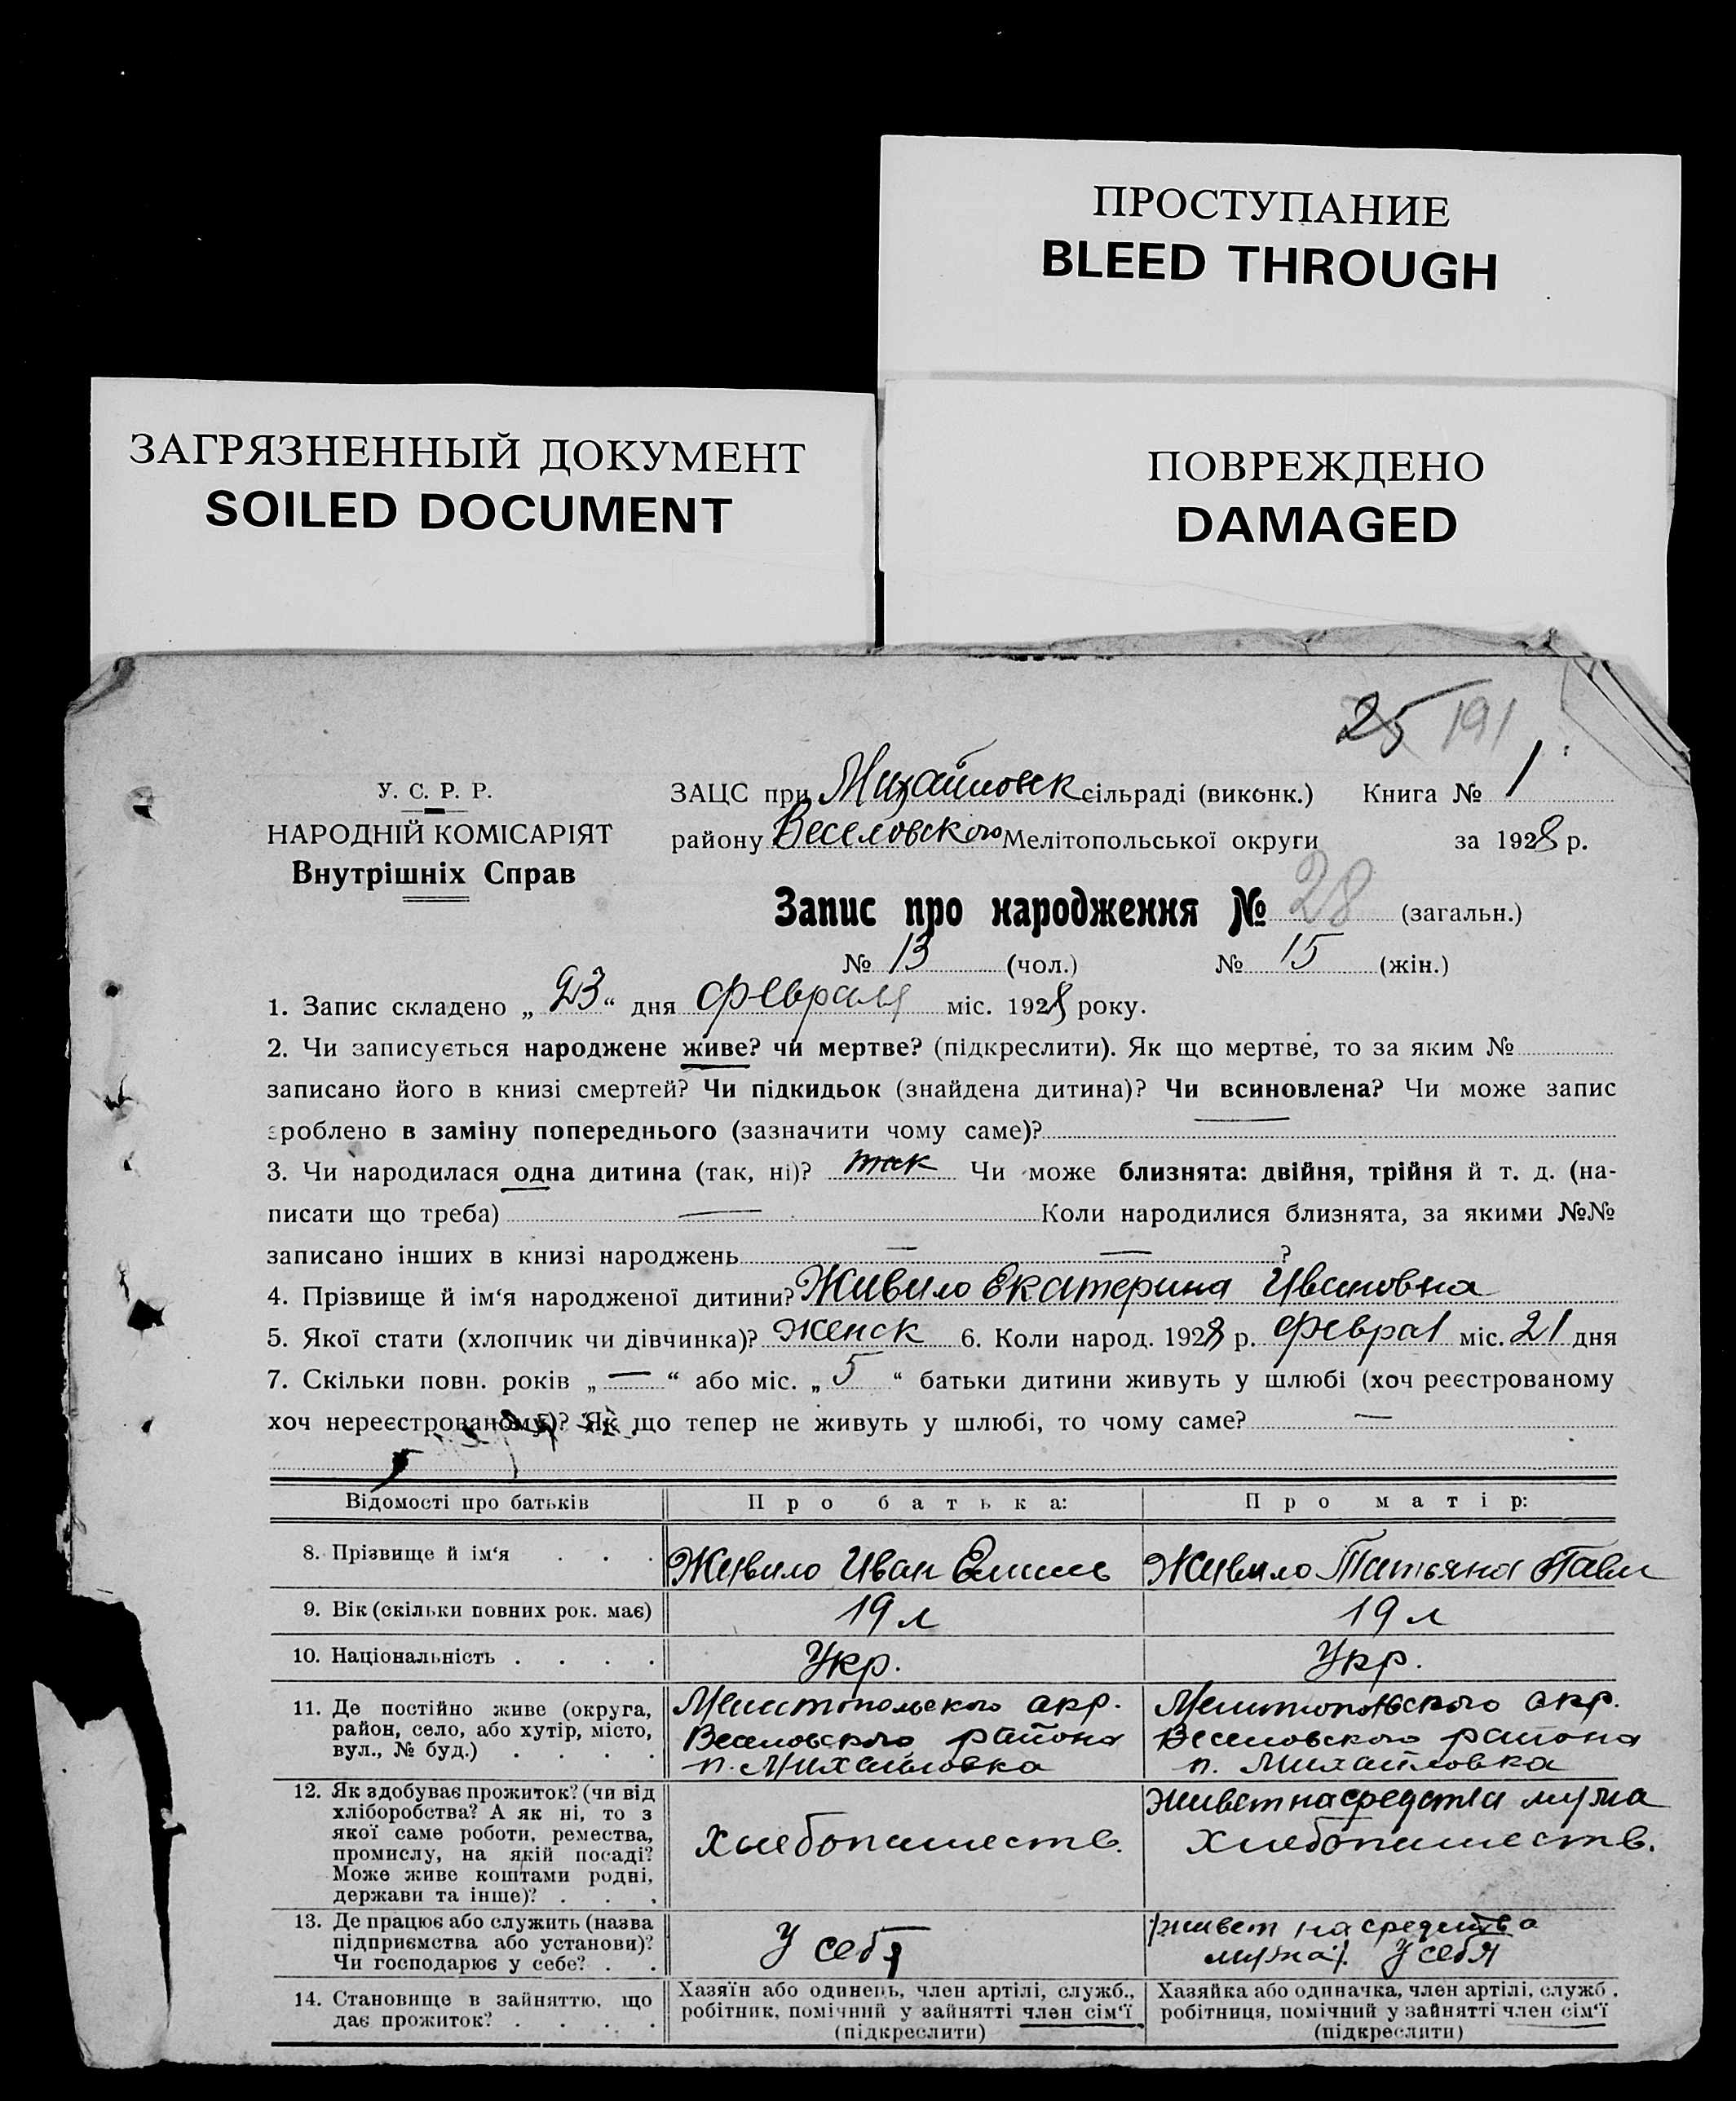 ПРОСТУПАНИЕ
BLEED THROUGH
ЗАГРЯЗНЕННЫЙ ДОКУМЕНТ
SOILED DOCUMENT
ПОВРЕЖДЕНО
DAMAGED
25 191
У. С. Р. Р.
НАРОДНІЙ КОМІСАРІЯТ
Внутрішніх Справ
ЗАЦС при Михайловск сільраді (виконк.) Книга № 1
району Веселовского Мелітопольської округи за 1928 р.
Запис про народження № 28 (загальн.)
№ 13 (чол.) № 15 (жін.)
1. Запис складено „ 23 “ дня февраля міс. 1928 року.
2. Чи записується народжене живе? чи мертве? (підкреслити). Як що мертве, то за яким №
записано його в книзі смертей? Чи підкидьок (знайдена дитина)? Чи всиновлена? Чи може запис
зроблено в заміну попереднього (зазначити чому саме)?
3. Чи народилася одна дитина (так, ні)? так Чи може близнята: двійня, трійня й т. д. (на-
писати що треба) — Коли народилися близнята, за якими №№
записано інших в книзі народжень — — ?
4. Прізвище й ім‘я народженої дитини? Живило Екатерина Ивановна
5. Якої стати (хлопчик чи дівчинка)? женск 6. Коли народ. 1928 р. феврал міс. 21 дня
7. Скільки повн. років „ — “ або міс. „ 5 “ батьки дитини живуть у шлюбі (хоч реєстрованому
хоч нереєстрованому)? Як що тепер не живуть у шлюбі, то чому саме? —
Відомості про батьків Про батька: Про матір:
8. Прізвище й ім‘я . . . Живило Иван Живило Татьяна Павл
9. Вік (скільки повних рок. має) 19 л 19 л
10. Національність . . . . Укр. Укр.
11. Де постійно живе (округа,
район, село, або хутір, місто,
вул., № буд.) . . . .
Мелитопольского окр.
Веселовского района
п. Михайловка
Мелитопольского окр.
Веселовского района
п. Михайловка
12. Як здобуває прожиток? (чи від
хліборобства? А як ні, то з
якої саме роботи, ремества,
промислу, на якій посаді?
Може живе коштами родні,
держави та інше)? . . .
хлебопашеств.
живет на средства мужа
хлебопашеств.
13. Де працює або служить (назва
підприємства або установи)?
Чи господарює у себе? . .
У себя
/живет на средства
мужа/. У себя
14. Становище в зайняттю, що
дає прожиток? . . . .
Хазяїн або одинець, член артілі, служб.,
робітник, помічний у зайнятті член сім‘ї
(підкреслити)
Хазяйка або одиначка, член артілі, служб.
робітниця, помічний у зайнятті член сім‘ї
(підкреслити)